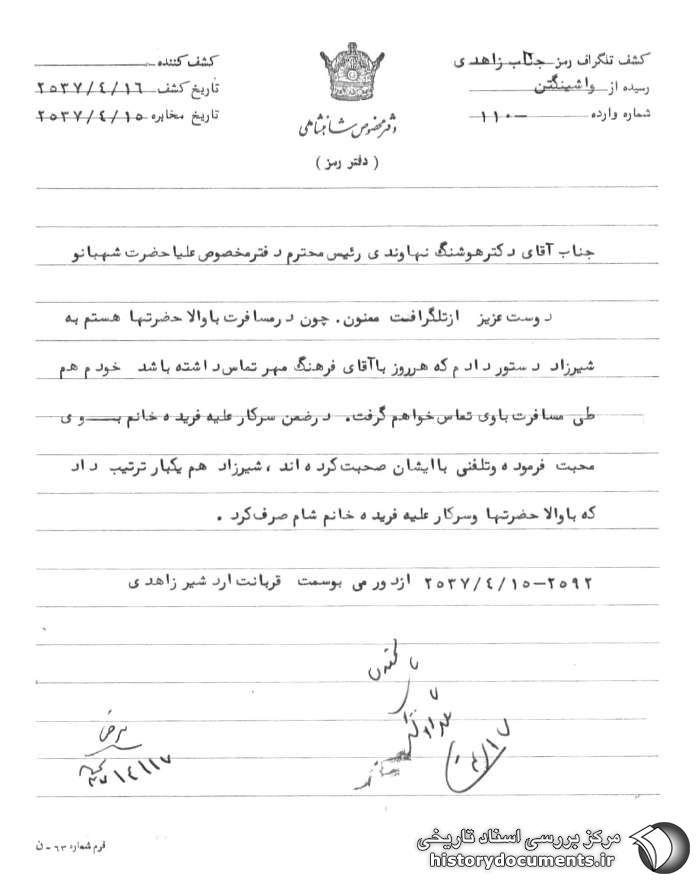 کشف تلگراف رمز جناب زاهدی
رسیده از واشینگتن
شماره وارده -۱۱۰
کشف کننده
تاریخ کشف ۲۵۳۷/۴/۱۶
تاریخ مخابره ۲۵۳۷/۴/۱۵
دفتر مخصوص شاهنشاهی
( دفتر رمز )
جناب آقای دکتر هوشنگ نهاوندی رئیس محترم دفتر مخصوص علیا حضرت شهبانو
دوست عزیز ازتلگرافت ممنون. چون درمسافرت باوالا حضرتها هستم به
شیرزاد دستور دادم که هرروز باآقای فرهنگ مهر تماس داشته باشد خودم هم
طی مسافرت باوی تماس خواهم گرفت. درضمن سرکار علیه فریده خانم بسوی
محبت فرموده وتلفنی باایشان صحبت کرده اند ، شیرزاد هم یکبار ترتیب داد
که باوالا حضرتها وسرکار علیه فریده خانم شام صرف کرد .
۲۵۳۷/۴/۱۵-۲۵۹۲ ازدور می بوسمت قربانت اردشیر زاهدی
فرم شماره ۶۳ - ن
مرکز بررسی اسناد تاریخی
historydocuments.ir